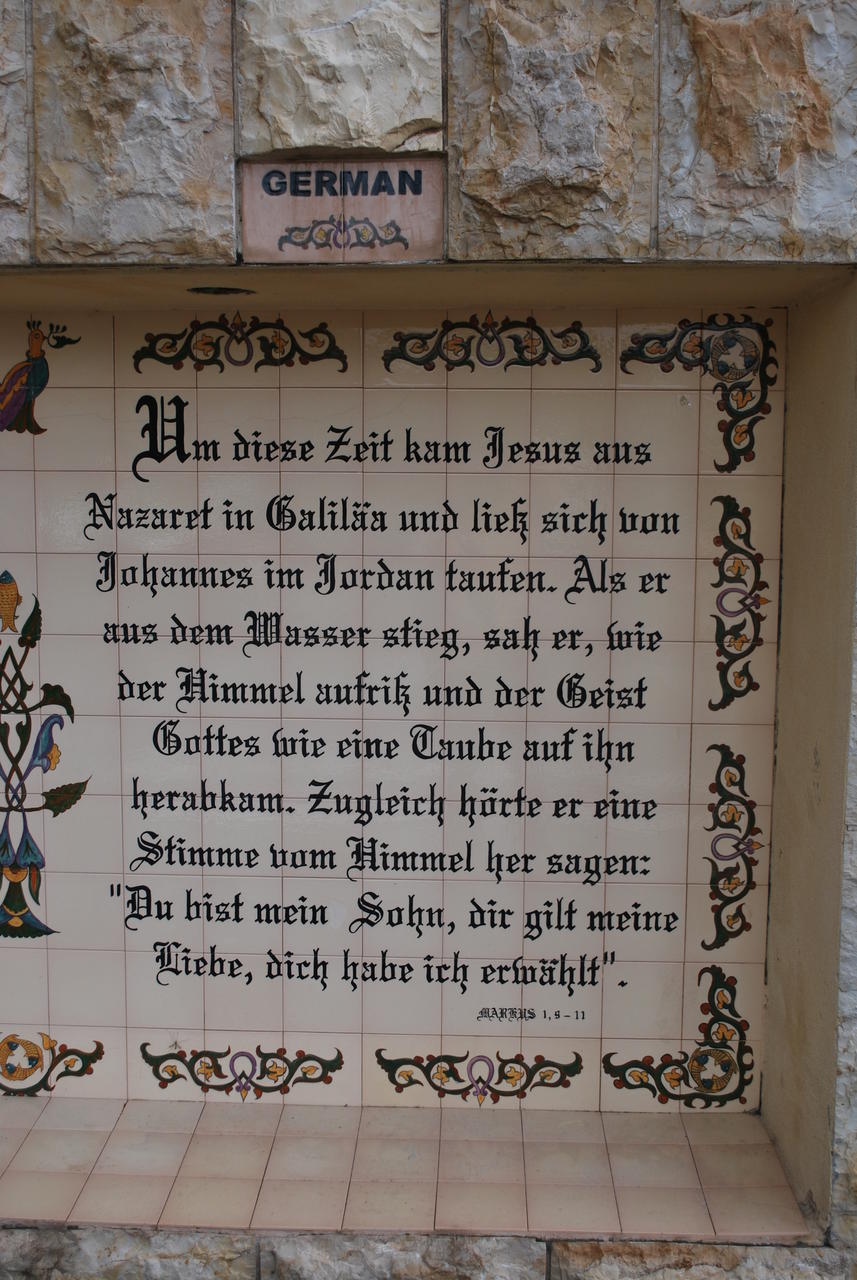 GERMAN
Um diese Zeit kam Jesus aus
Nazaret in Galiläa und ließ sich von
Johannes im Jordan taufen. Als er
aus dem Wasser stieg, sah er, wie
der Himmel aufriß und der Geist
Gottes wie eine Taube auf ihn
herabkam. Zugleich hörte er eine
Stimme vom Himmel her sagen:
"Du bist mein Sohn, dir gilt meine
Liebe, dich habe ich erwählt".
MARKUS 1, 9 – 11